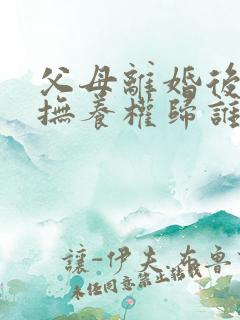 父母離婚後
撫養權歸誰
讓-伊夫·布魯
未经同意禁止转载